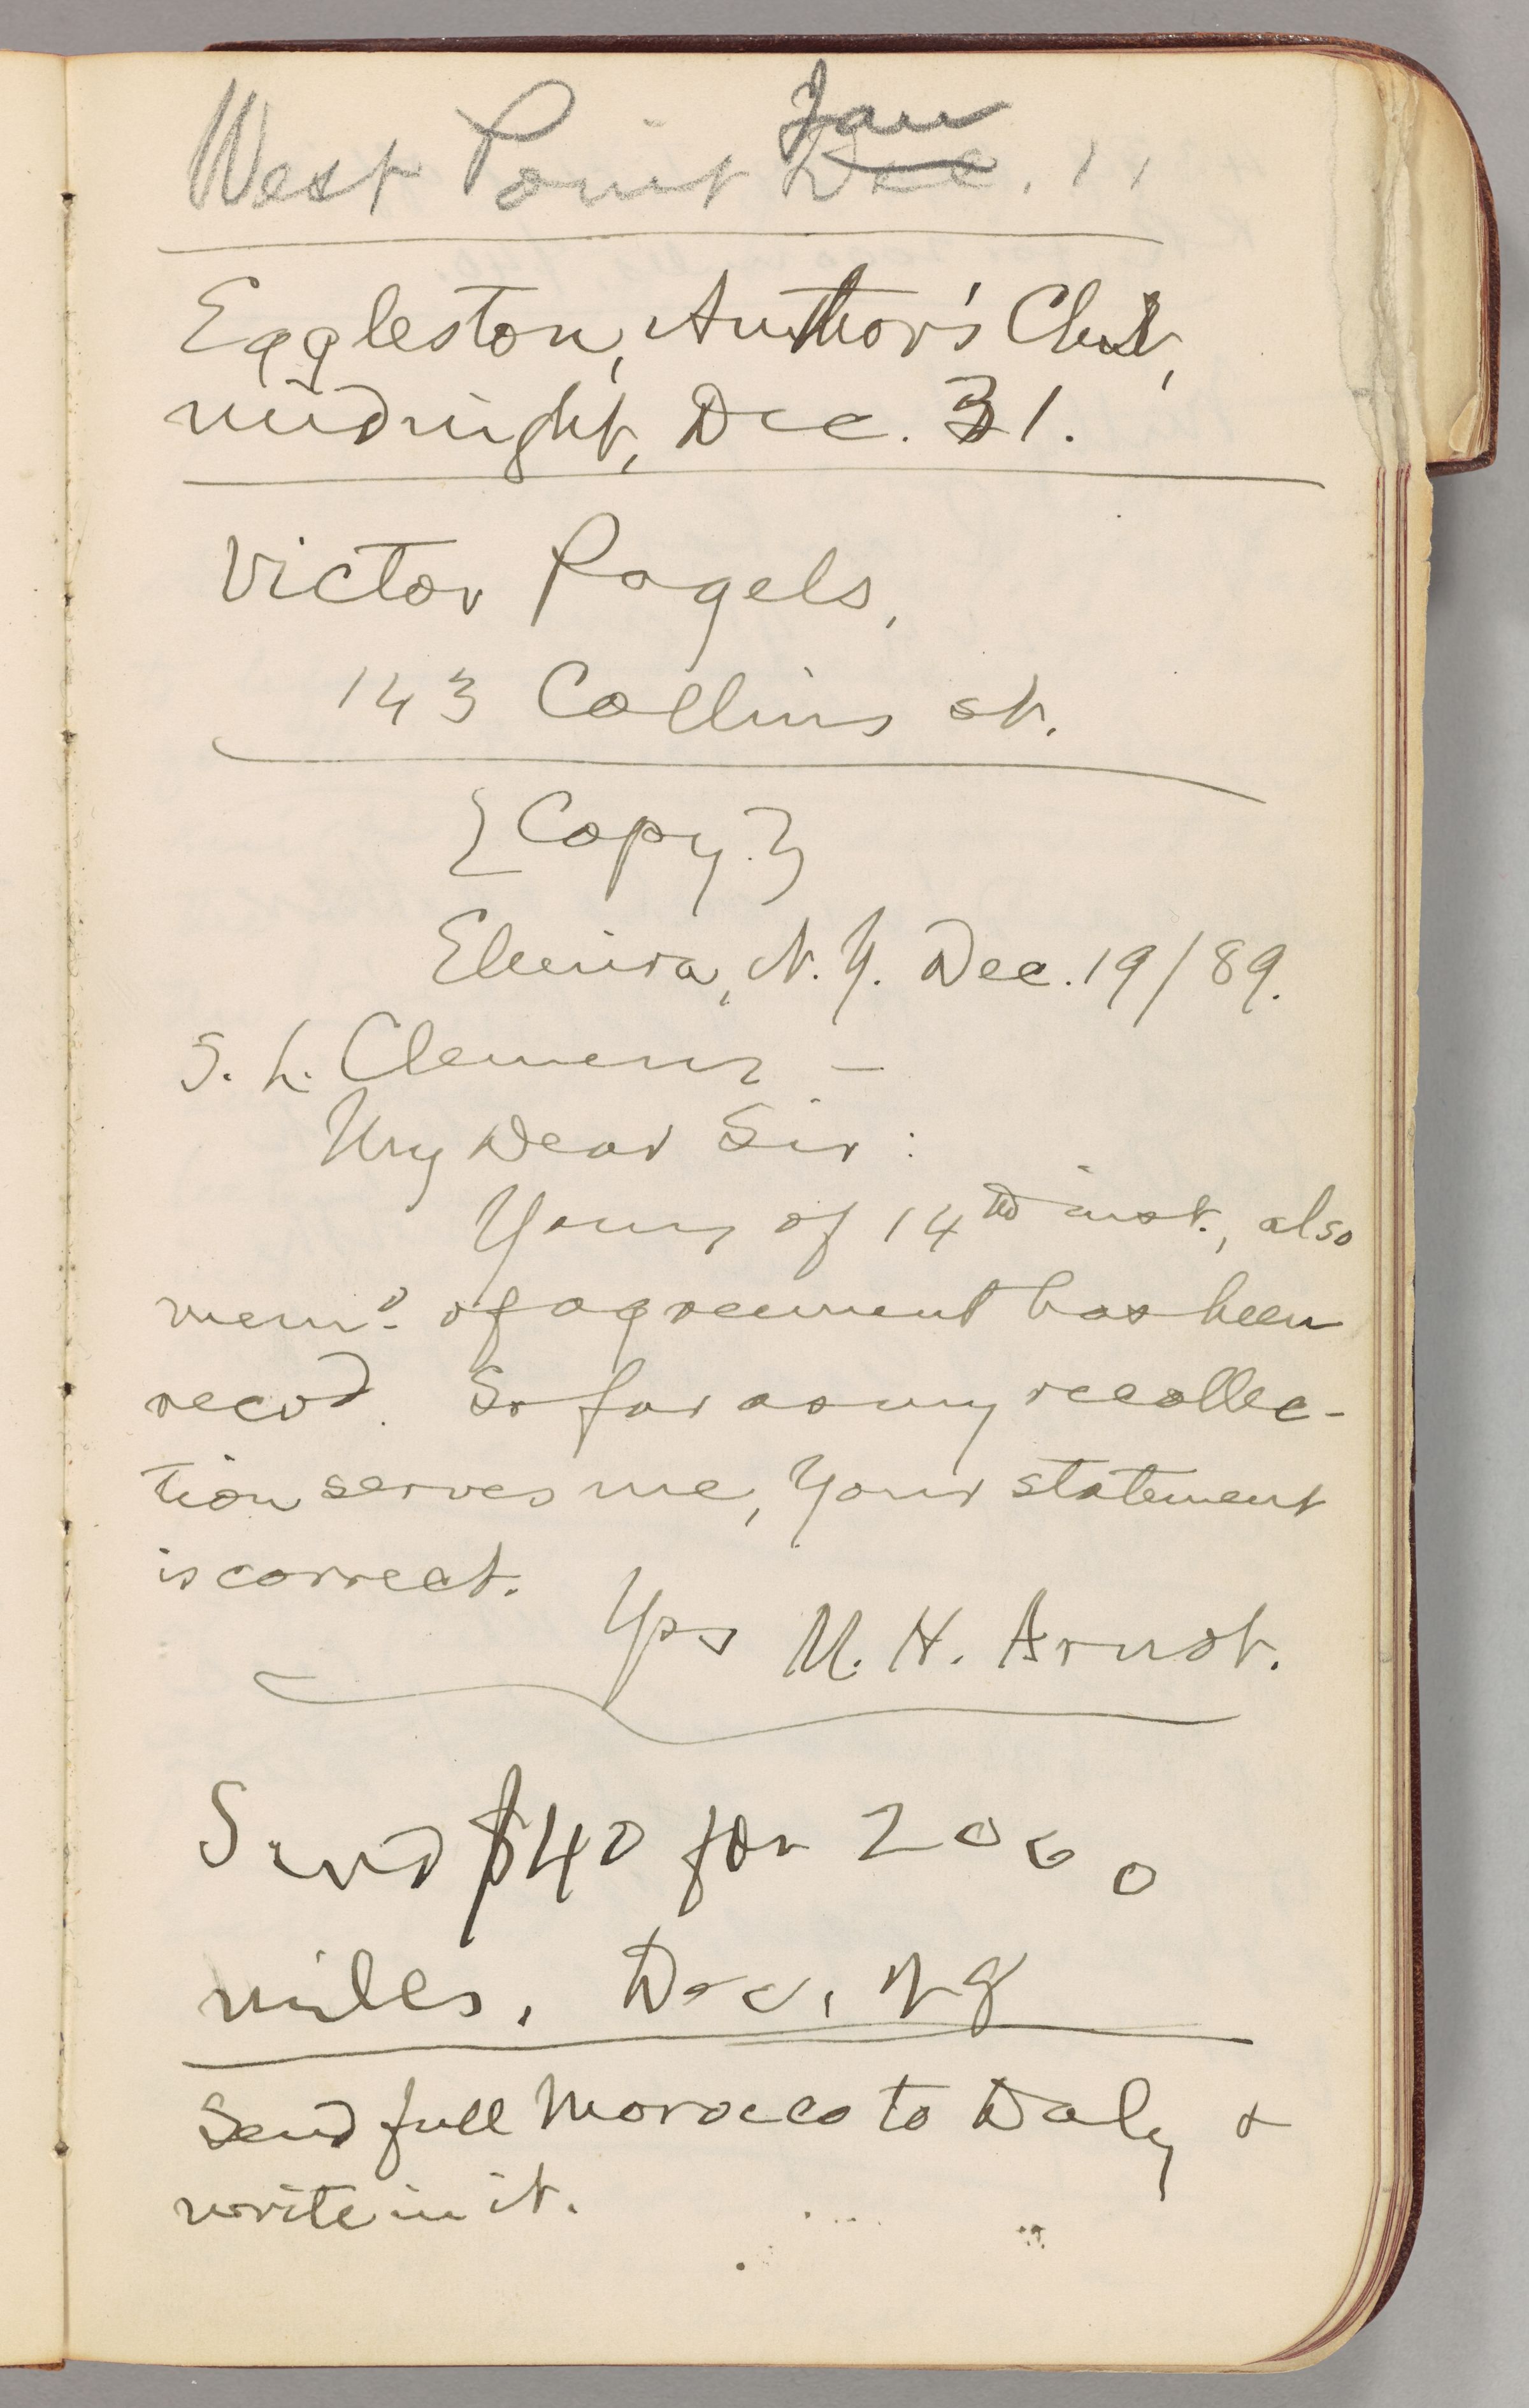 West Point Jan Dec. 11
Eggleston, Author's Club,
midnight, Dec. 31.
Victor Pagels,
143 Collins st.
{Copy.}
Elmira, N. Y. Dec. 19/89.
S. L. Clemens —
My Dear Sir:
Yours of 14th inst., also
memo. of agreement has been
recvd. So far as my recollec-
tion serves me, Your statement
is correct.
Yrs M. H. Arnot.
Send $40 for 2000
miles. Dec.
Send full Morocco to Daly &
write in it.